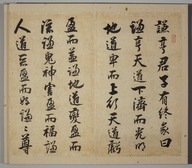 謙亨君子有終彖曰
謙亨天道下濟而光明
地道卑而上行天道虧
盈而益謙地道變盈而
流謙鬼神害盈而福謙
人道惡盈而好謙〻尊